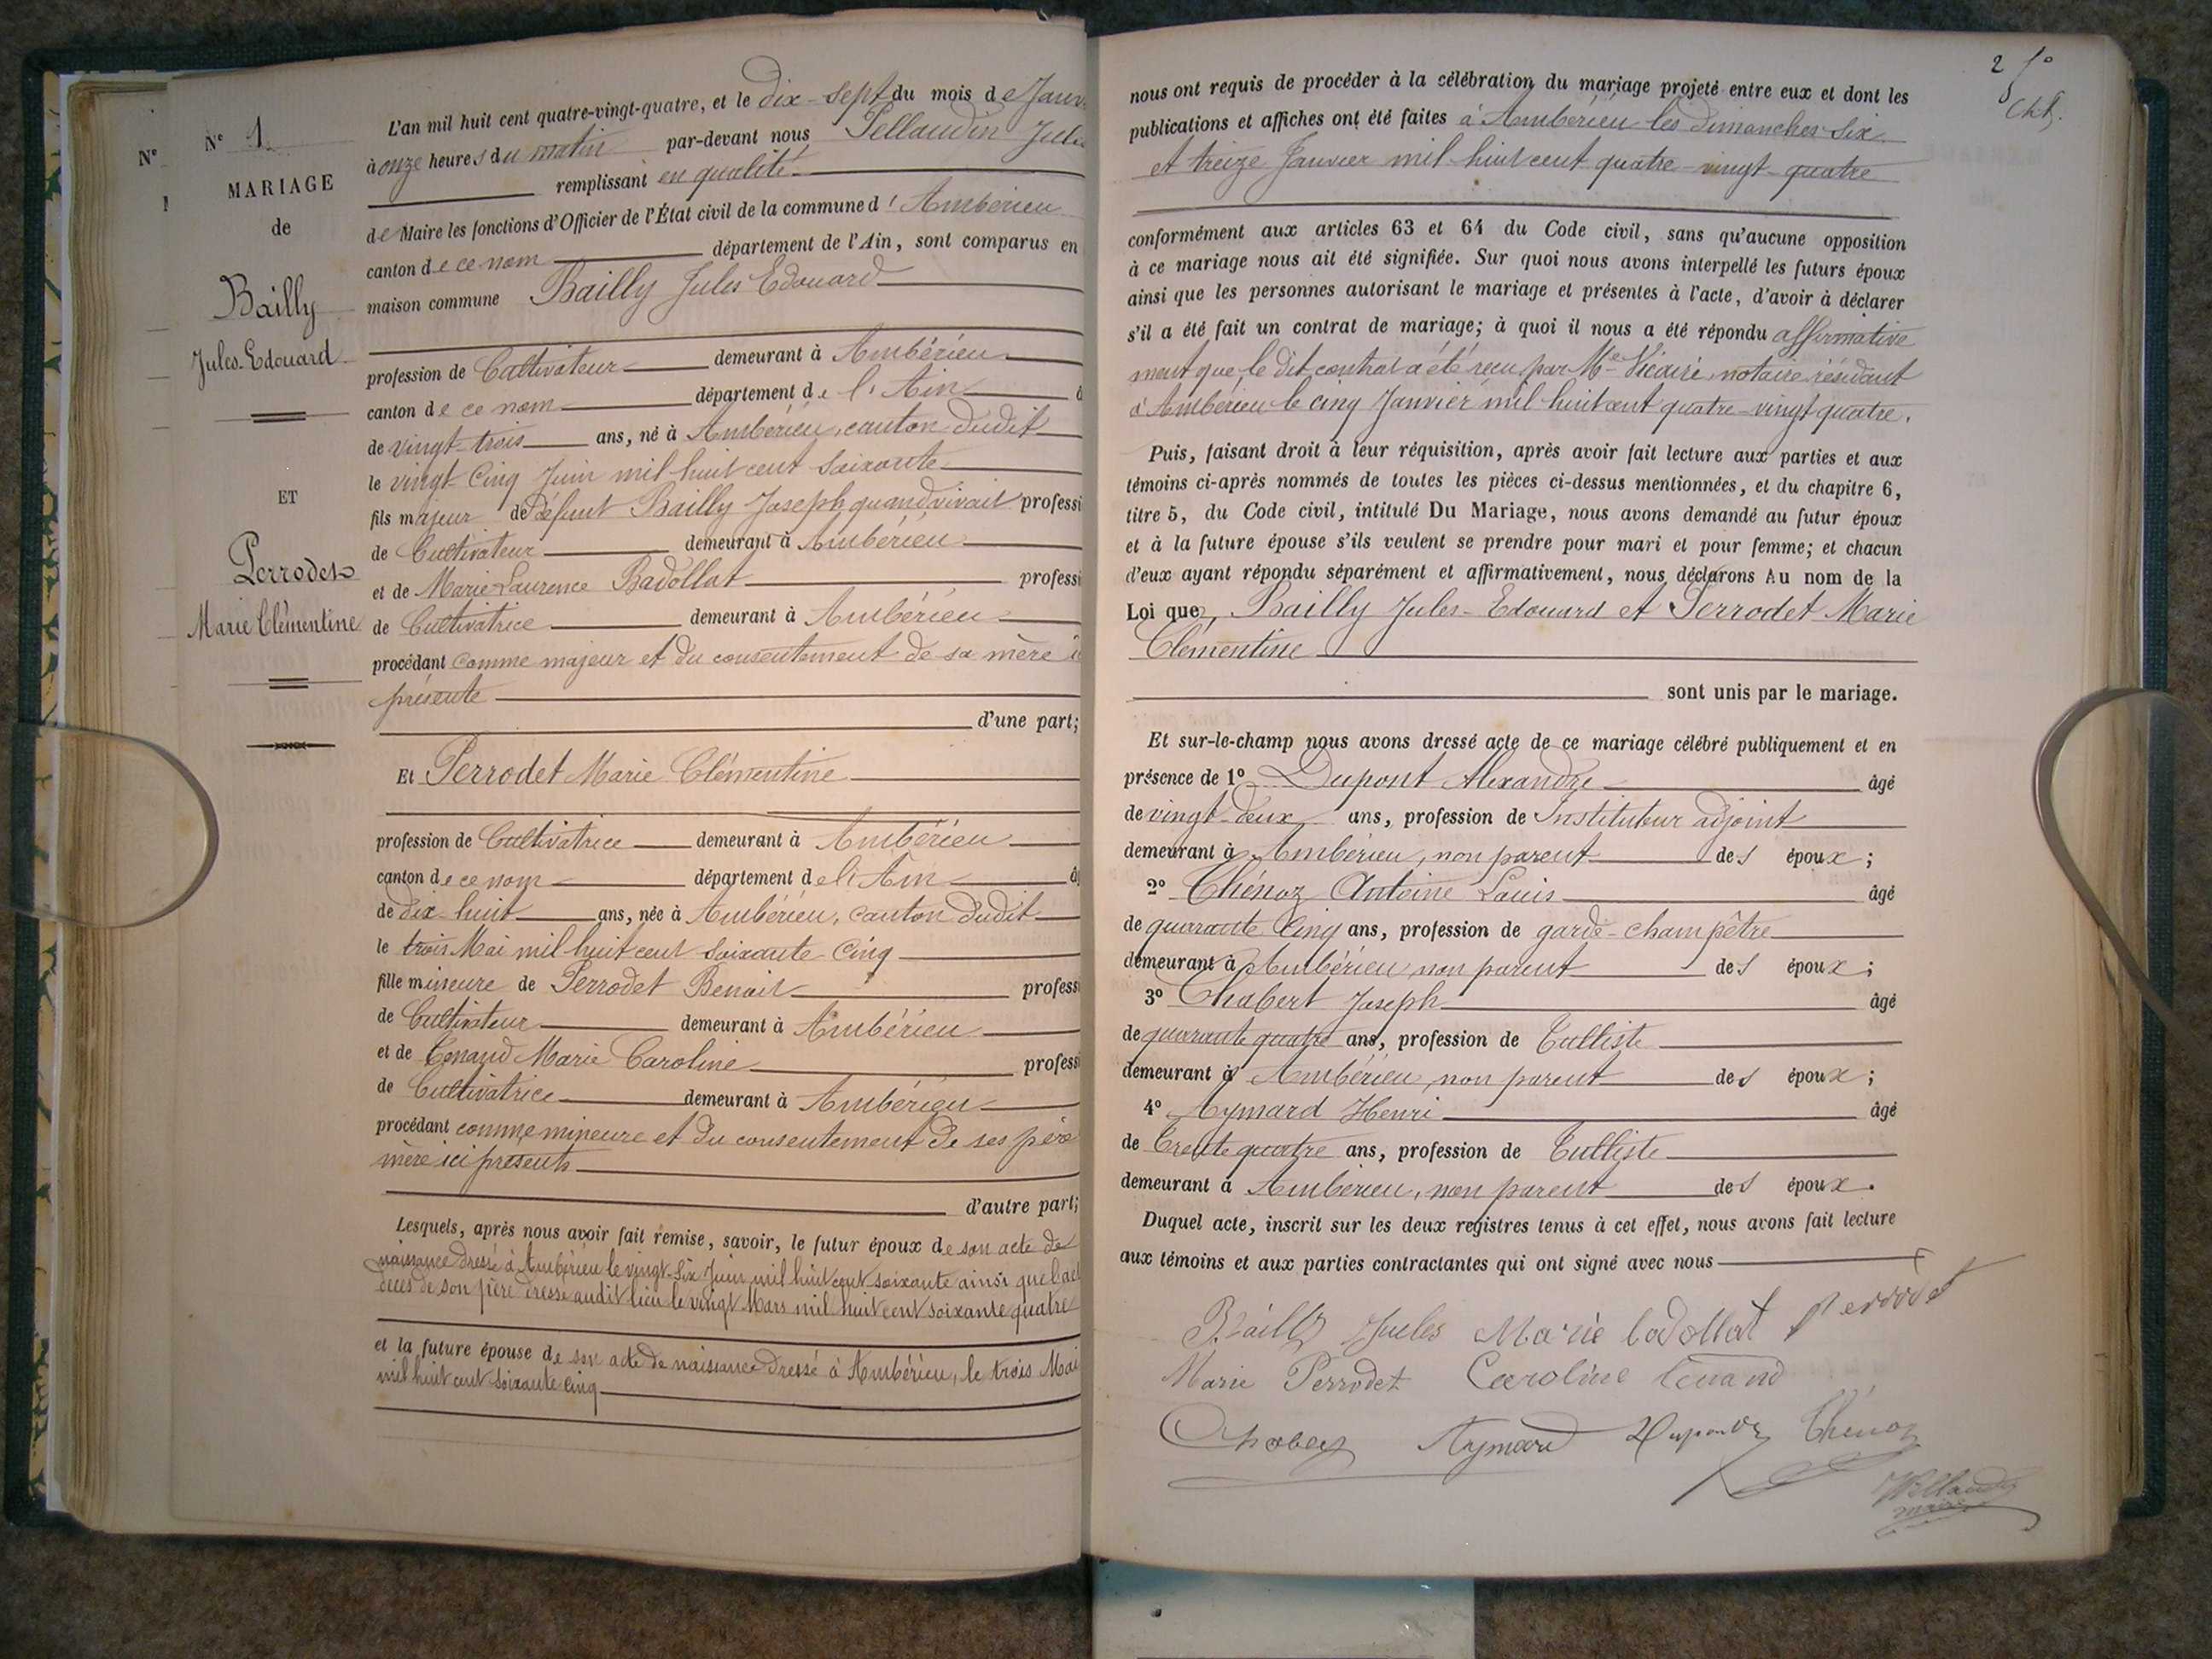 N° 1
MARIAGE
de
Bailly
Jules-Edouard
ET
Perrodet
Marie Clémentine
L'an mil huit cent quatre-vingt-quatre, et le dix-sept du mois de Janv
à onze heures du matin par-devant nous Pellaudin Jules
remplissant en qualité
de Maire les fonctions d'Officier de l'État civil de la commune d'Ambérieu
canton de ce nom département de l'Ain, sont comparus en
maison commune Bailly Jules Edouard
profession de Cultivateur demeurant à Ambérieu
canton de ce nom département de l'Ain â
de vingt-trois ans, né à Ambérieu, canton dudit
le vingt-cinq Juin mil huit cent soixante
fils majeur de défunt Bailly Joseph quand vivait professi
de Cultivateur demeurant à Ambérieu
et de Marie Laurence Badollat professi
de Cultivatrice demeurant à Ambérieu
procédant comme majeur et du consentement de sa mère i
présente
d'une part;
Et Perrodet Marie Clémentine
profession de Cultivatrice demeurant à Ambérieu
canton de ce nom département de l'Ain âg
de dix-huit ans, née à Ambérieu, canton dudit
le trois Mai mil huit cent soixante-cinq
fille mineure de Perrodet Benoit professi
de Cultivateur demeurant à Ambérieu
et de Tenand Marie Caroline professi
de Cultivatrice demeurant à Ambérieu
procédant comme mineure et du consentement de ses père
mère ici présents
d'autre part;
Lesquels, après nous avoir fait remise, savoir, le futur époux de son acte de
naissance dressé à Ambérieu le vingt-six Juin mil huit cent soixante ainsi que l'act
décès de son père dressé audit lieu le vingt Mars mil huit cent soixante quatre
et la future épouse de son acte de naissance dressé à Ambérieu, le trois Mai
mil huit cent soixante-cinq
2
nous ont requis de procéder à la célébration du mariage projeté entre eux et dont les
publications et affiches ont été faites à Ambérieu les dimanches six
et treize Janvier mil huit cent quatre-vingt-quatre
conformément aux articles 63 et 64 du Code civil, sans qu'aucune opposition
à ce mariage nous ait été signifiée. Sur quoi nous avons interpellé les futurs époux
ainsi que les personnes autorisant le mariage et présentes à l'acte, d'avoir à déclarer
s'il a été fait un contrat de mariage; à quoi il nous a été répondu affirmative
ment que le dit contrat a été reçu par Me Vicaire, notaire résidant
à Ambérieu le cinq Janvier mil huit cent quatre-vingt quatre.
Puis, faisant droit à leur réquisition, après avoir fait lecture aux parties et aux
témoins ci-après nommés de toutes les pièces ci-dessus mentionnées, et du chapitre 6,
titre 5, du Code civil, intitulé Du Mariage, nous avons demandé au futur époux
et à la future épouse s'ils veulent se prendre pour mari et pour femme; et chacun
d'eux ayant répondu séparément et affirmativement, nous déclarons Au nom de la
Loi que, Bailly Jules-Edouard et Perrodet Marie
Clémentine
sont unis par le mariage.
Et sur-le-champ nous avons dressé acte de ce mariage célébré publiquement et en
présence de 1° Dupont Alexandre âgé
de vingt-deux ans, profession de Instituteur adjoint
demeurant à Ambérieu, non parent des époux;
2° Thénoz Antoine Louis âgé
de quarante cinq ans, profession de garde-champêtre
demeurant à Ambérieu non parent des époux;
3° Chabert Joseph âgé
de quarante quatre ans, profession de Tulliste
demeurant à Ambérieu, non parent des époux;
4° Aymard Henri âgé
de Trente quatre ans, profession de Tulliste
demeurant à Ambérieu, non parent des époux.
Duquel acte, inscrit sur les deux registres tenus à cet effet, nous avons fait lecture
aux témoins et aux parties contractantes qui ont signé avec nous
Bailly Jules Marie badollat perrodet
Marie Perrodet Caroline tenand
Chabert Aymard Dupont Thénoz
Pellaudin
maire